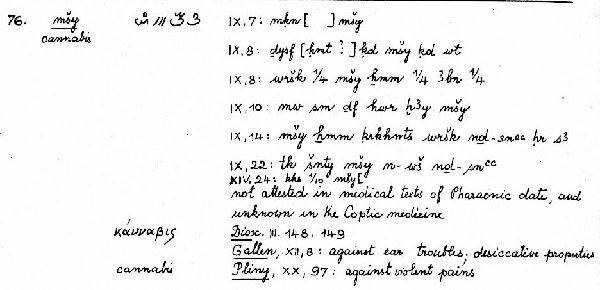 76. mšy IX, 7: mkn [ ] mšy
cannabis
IX, 8: dysf [knt ? ] kd mšy kd wt
IX, 8: wršk 1/4 mšy ḫmm 1/4 3bn 1/4
IX, 10: mw sm df hwr ḫ3y mšy
IX, 14: mšy ḫmm krkhnts wršk nd-snꜥꜥ ḥr s3
IX, 22: tk šnty mšy n-wš nd-snꜥꜥ
XIV, 24: kks 1/10 mšy [
not attested in medical texts of Pharaonic date, and
unknown in the Coptic medicine
κάνναβις Diosc. III. 148. 149
Gallen, XII, 8: against ear troubles; desiccative properties
cannabis Pliny, XX, 97: against violent pains